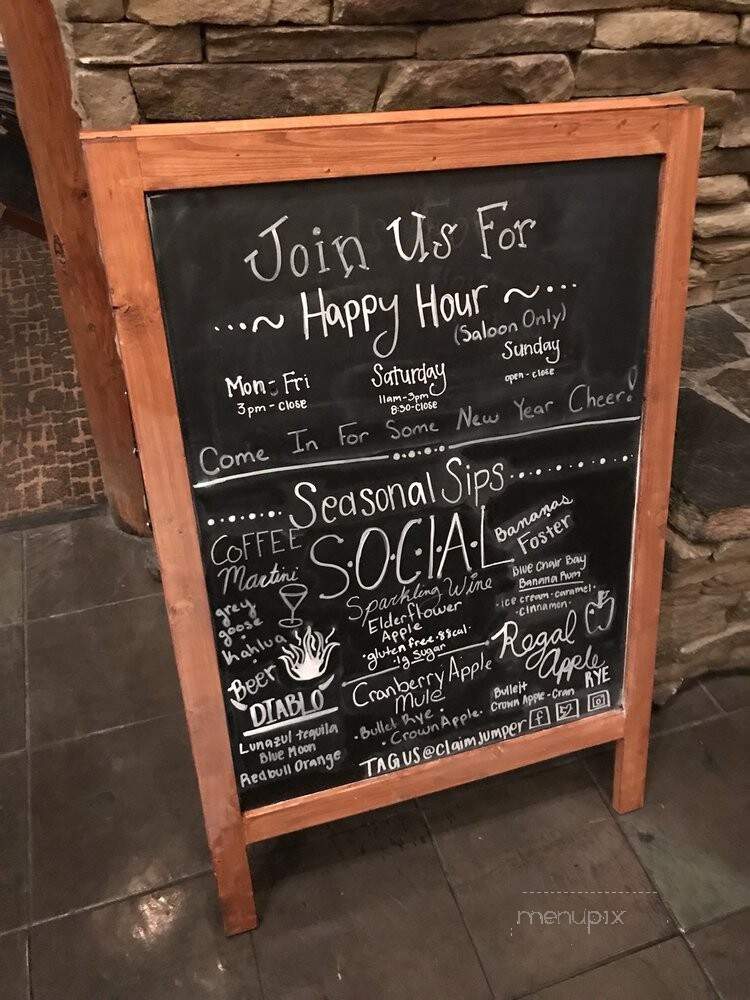 Join Us For
...~ Happy Hour ~...
(Saloon Only)
Mon - Fri
3pm - close
Saturday
11am-3pm
8:30-close
Sunday
open - close
Come In For Some New Year Cheer!
Seasonal Sips
COFFEE
Martini
grey
goose
Kahlua
Beer
DIABLO
Lunazul tequila
Blue Moon
Redbull Orange
S·O·C·I·A·L
Sparkling Wine
Elderflower
Apple
·gluten free·88cal·
·1g Sugar
Cranberry Apple
Mule
·Bullet Rye·
·Crown Apple·
Bananas
Foster
Blue Chair Bay
Banana Rum
·ice cream·caramel·
·cinnamon·
Regal
Apple
RYE
Bulleit
Crown Apple-Cran
TAGUS@claimJumper
f
menupix